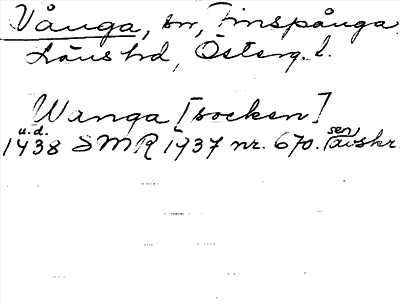 Vånga, sn, Finspånga
läns hd, Österg. l.
Wanga [socken]
u.d.
1438 SMR 1937 nr. 670. sen avskr.